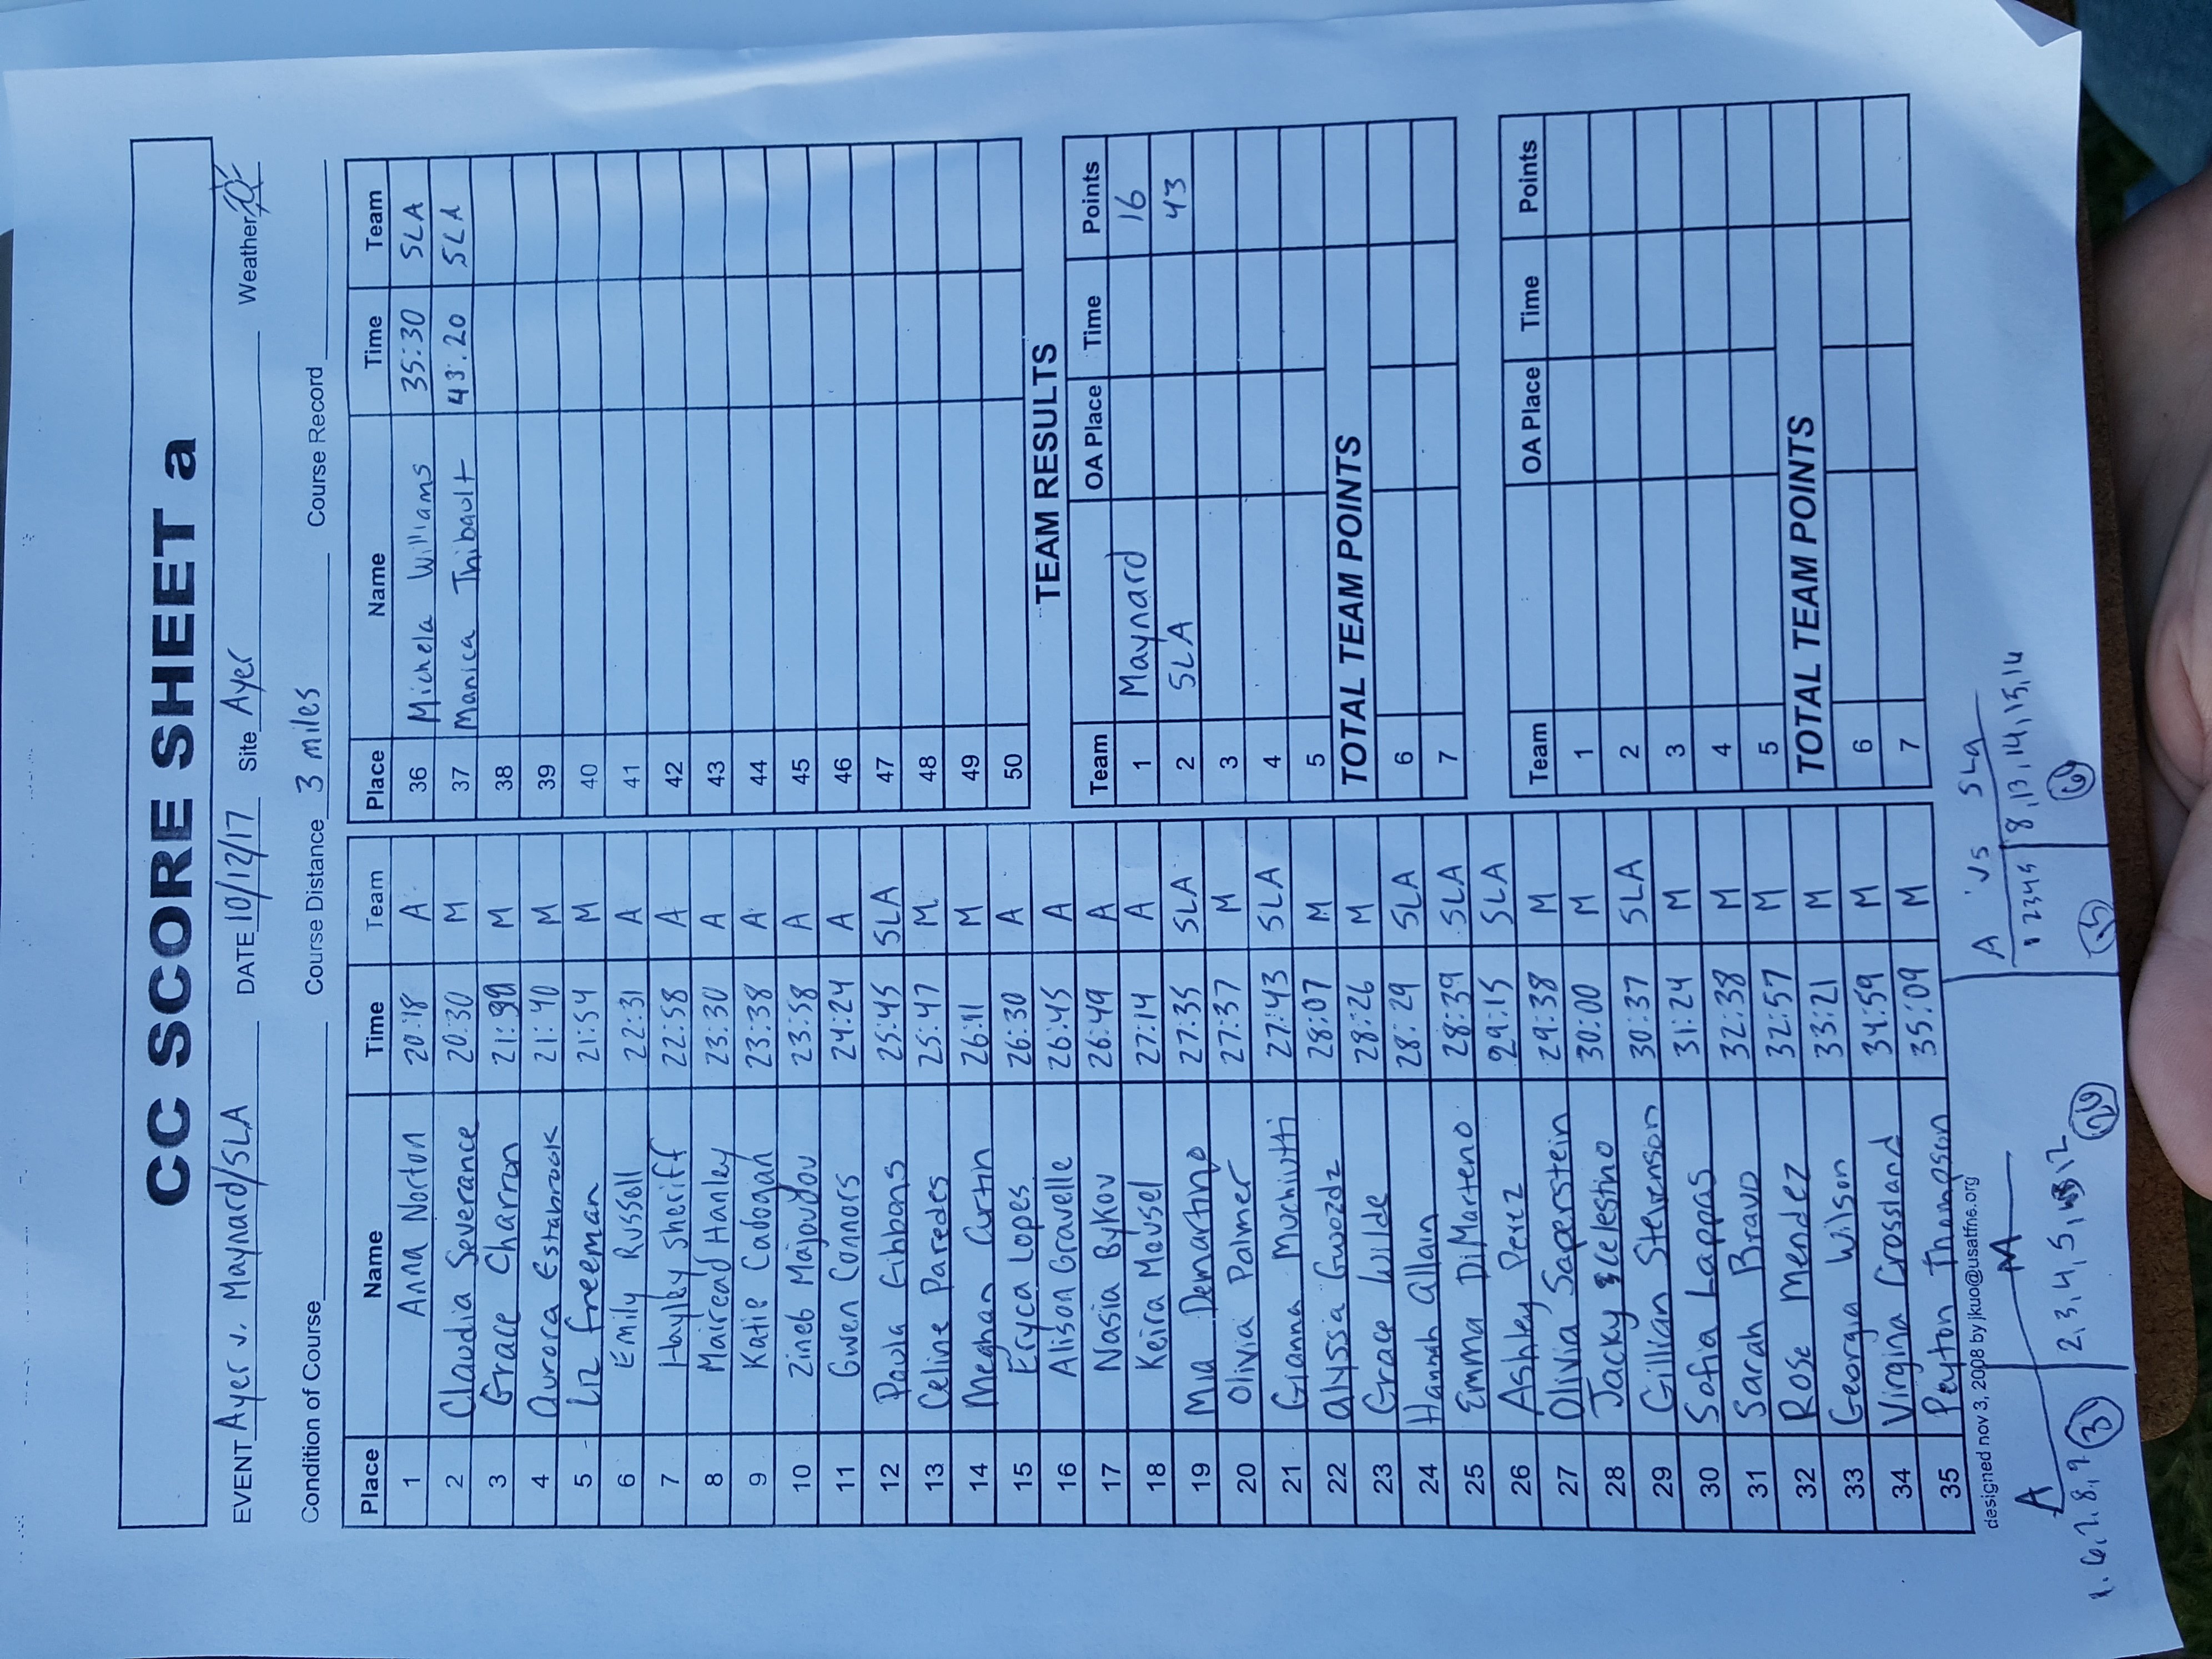 CC SCORE SHEET a
EVENT Ayer v. Maynard/SLA DATE 10/12/17 Site Ayer Weather
Condition of Course Course Distance 3 miles Course Record
Place Name Time Team
1 Anna Norton 20:18 A
2 Claudia Severance 20:30 M
3 Grace Charron M
4 Aurora Estabrook 21:40 M
5 Liz freeman 21:54 M
6 Emily Russell 22:31 A
7 Hayley Sheriff 22:58 A
8 Mairead Hanley 23:30 A
9 Katie Cadogan 23:38 A
10 Zineb Majoudou 23:58 A
11 Gwen Connors 24:24 A
12 Paula Gibbons 25:45 SLA
13 Celine Paredes 25:47 M
14 Meghan Curtin 26:11 M
15 Eryca Lopes 26:30 A
16 Alison Gravelle 26:45 A
17 Nasia Bykov 26:49 A
18 Keira Meusel 27:14 A
19 Mia Demartino 27:35 SLA
20 Olivia Palmer 27:37 M
21 Gianna Muchiutti 27:43 SLA
22 alyssa Gwozdz 28:07 M
23 Grace Wilde 28:26 M
24 Hannah allain 28:29 SLA
25 Emma DiMarteno 28:39 SLA
26 Ashley Perez 29:15 SLA
27 Olivia Saperstein 29:38 M
28 Jacky celestino 30:00 M
29 Gillian Stevenson 30:37 SLA
30 Sofia Lappas 31:24 M
31 Sarah Bravo 32:38 M
32 Rose Mendez 32:57 M
33 Georgia Wilson 33:21 M
34 Virgina Crossland 34:59 M
35 Peyton Thompson 35:09 M
designed nov 3, 2008 by jkuo@usatfne.org
Place Name Time Team
36 Michela Williams 35:30 SLA
37 Manica Thibault 43:20 SLA
38
39
40
41
42
43
44
45
46
47
48
49
50
TEAM RESULTS
Team OA Place Time Points
1 Maynard 16
2 SLA 43
3
4
5
TOTAL TEAM POINTS
6
7
Team OA Place Time Points
1
2
3
4
5
TOTAL TEAM POINTS
6
7
A M
1, 6, 7, 8, 9 31 2, 3, 4, 5, 12 26
A vs SLA
1 2 3 4 5 8, 13, 14, 15, 16
15